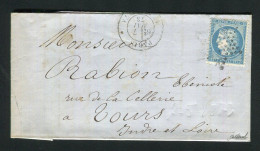 Monsieur
Rabion Ebéniste
rue de la Cellerie
à Tours
Indre et Loire